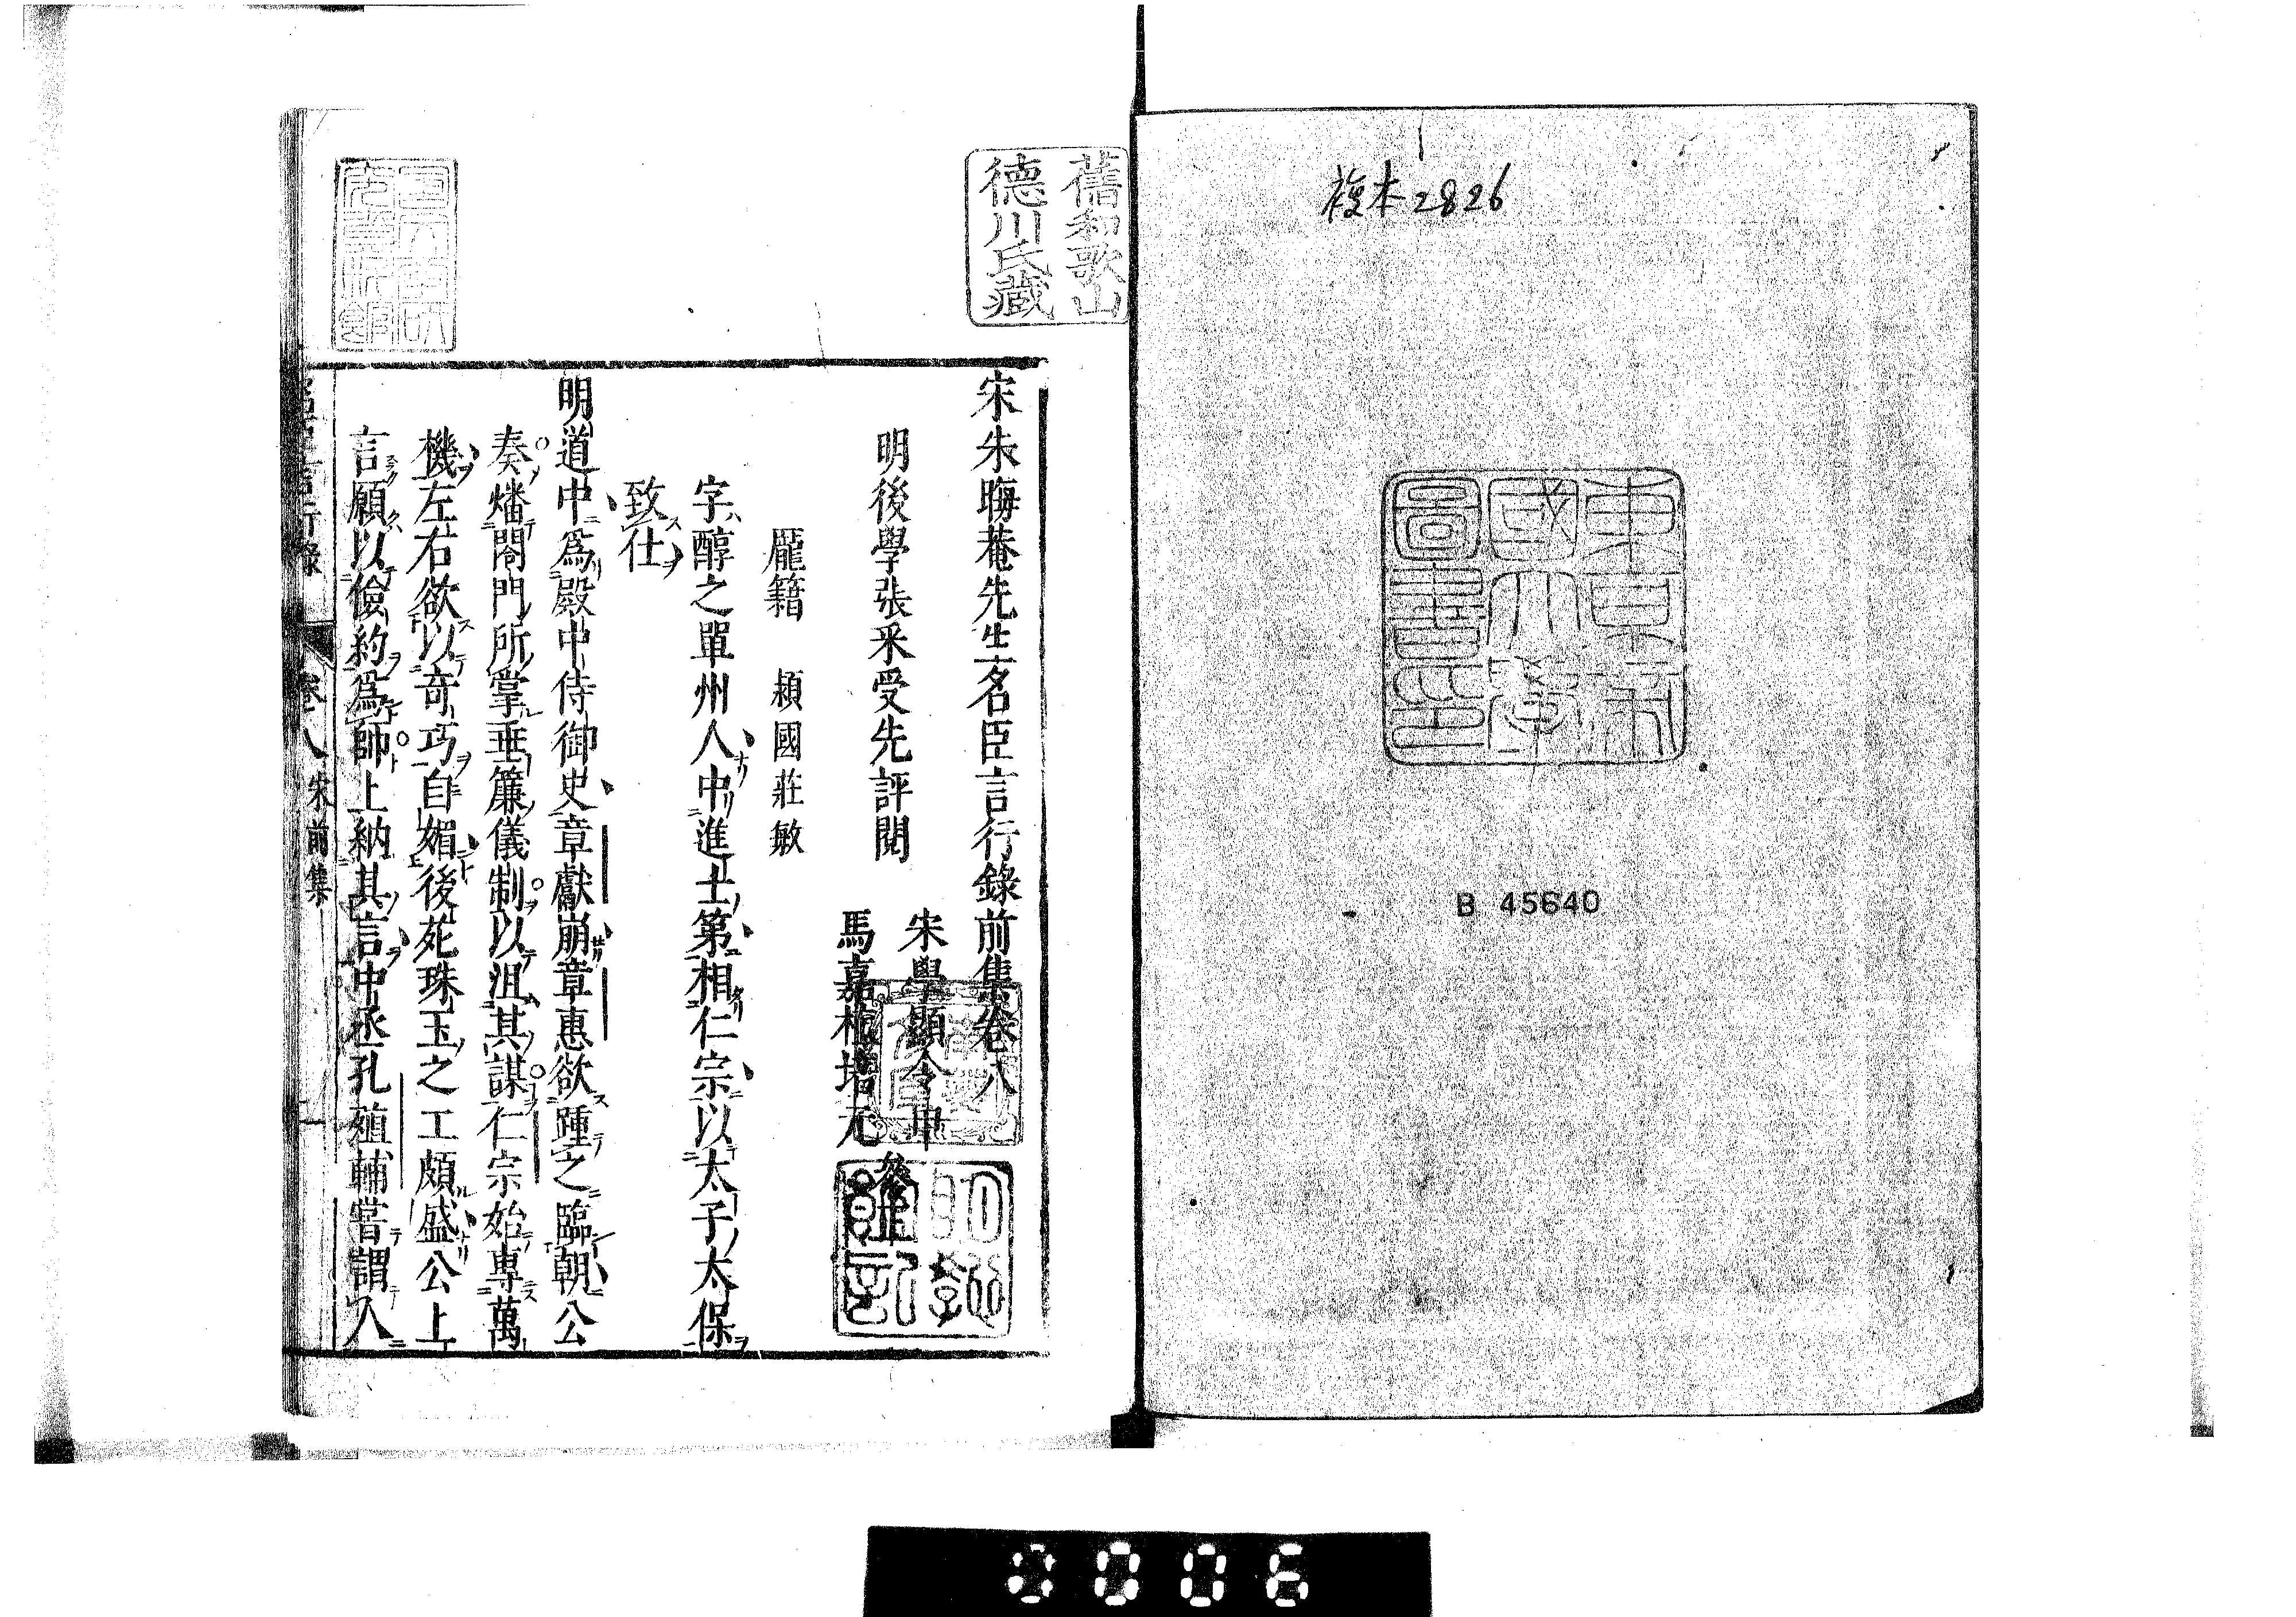 複本2826
東京帝
國大學
圖書印
B 45640
舊和歌山
德川氏藏
宋朱晦菴先生名臣言行錄前集卷八
明後學張采受先評閱
宋學顯令申
馬嘉植培元
參正
龐籍 潁國莊敏
字醇之單州人中進士第相仁宗以太子太保
致仕
明道中爲殿中侍御史章獻崩章惠欲踵之臨朝公
奏燔閤門所掌垂簾儀制以沮其謀仁宗始專萬
機左右欲以奇巧自媚後苑珠玉之工頗盛公上
言願以儉約爲師上納其言中丞孔殖輔嘗謂人
名臣言行錄 卷八 宋前集 一
0006